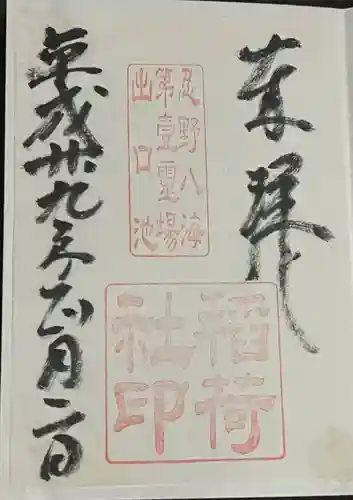 奉拝
忍野八海
第壹霊場
出口池
稲荷
社印
平成廿九年正月二日